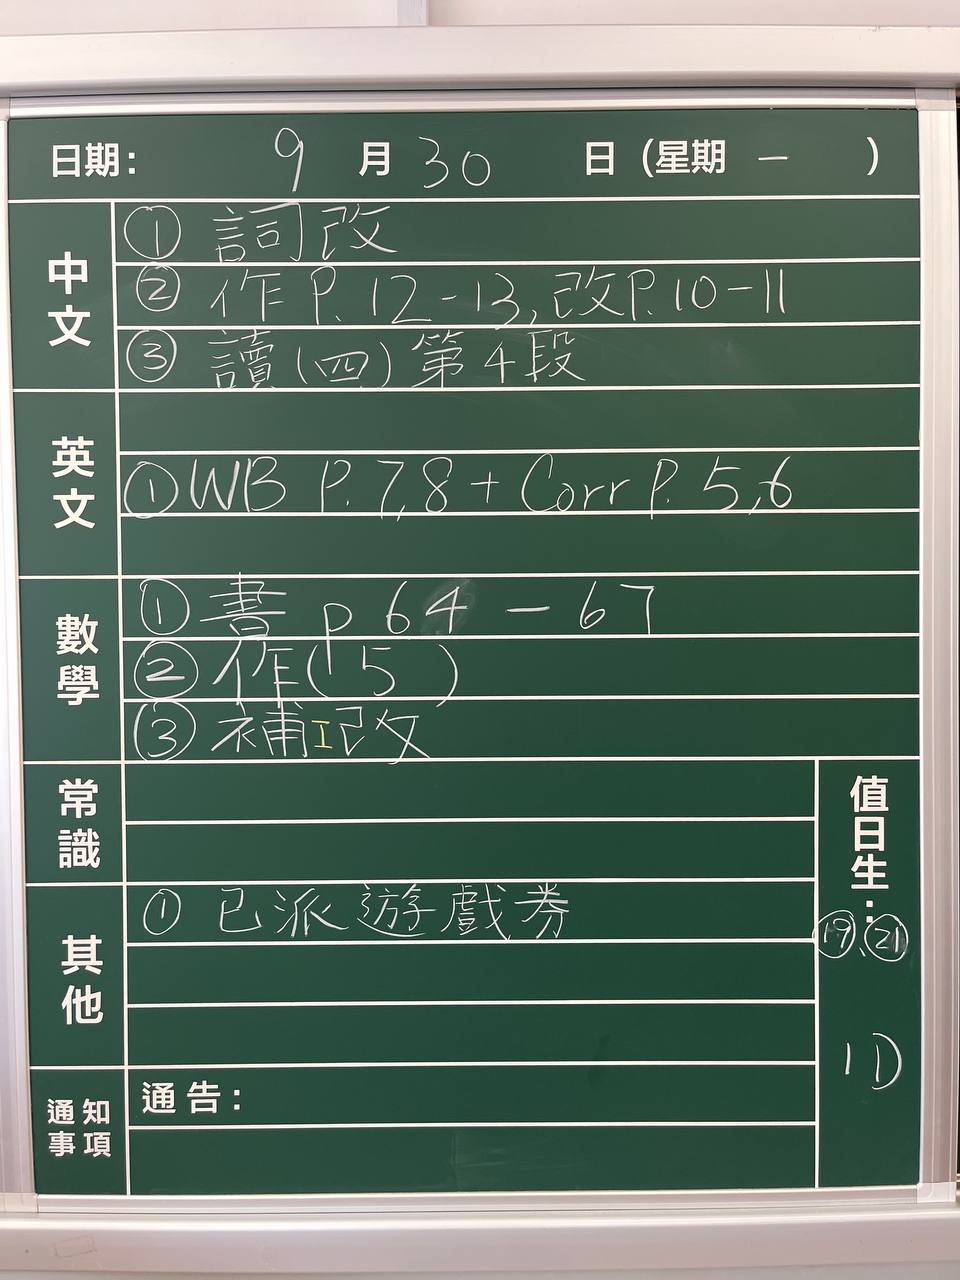 日期： 9 月 30 日 (星期 一 )
中文
① 詞改
② 作 P. 12-13, 改 P. 10-11
③ 讀(四)第4段
英文
① WB P. 7,8 + Corr P. 5,6
數學
① 書 p 64 - 67
② 作( 5 )
③ 補I改
常識
其他
① 已派遊戲券
值日生：
⑲、㉑
1D
通知事項
通告：